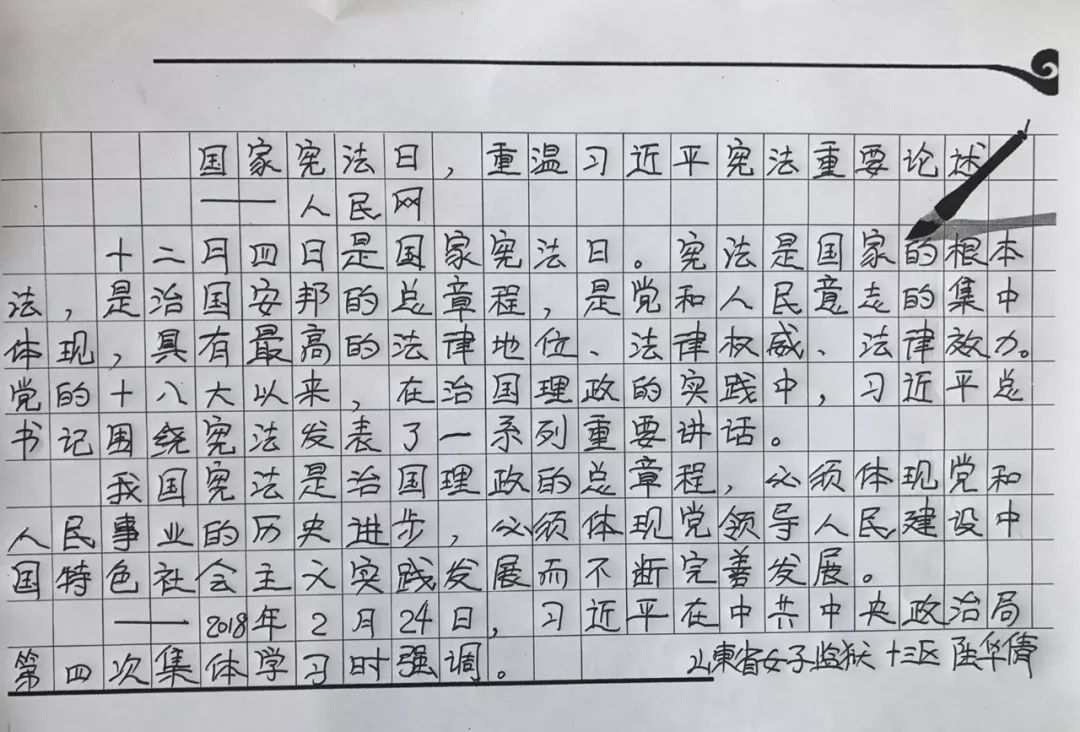 国家宪法日，重温习近平宪法重要论述
——人民网
十二月四日是国家宪法日。宪法是国家的根本
法，是治国安邦的总章程，是党和人民意志的集中
体现，具有最高的法律地位、法律权威、法律效力。
党的十八大以来，在治国理政的实践中，习近平总
书记围绕宪法发表了一系列重要讲话。
我国宪法是治国理政的总章程，必须体现党和
人民事业的历史进步，必须体现党领导人民建设中
国特色社会主义实践发展而不断完善发展。
——2018年2月24日，习近平在中共中央政治局
第四次集体学习时强调。
山東省女子监狱 十三区 华倩